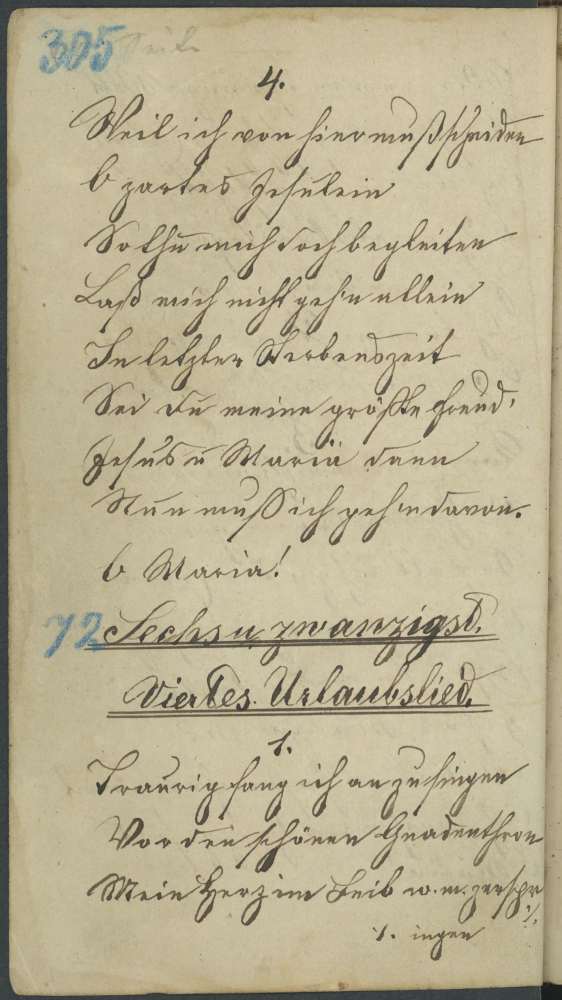 305
4.
Weil ich von hier muß scheiden
O zartes Jesulein
So thu mich doch begleiten
Laß mich nicht geh'n allein
In letzter Sterbenszeit
Sei Du meine größte Freud'
Jesus u Maria dann
Nun muß ich geh'n davon.
O Maria!
72 Sechs u. zwanzigst.
Viertes. Urlaubslied.
1.
Traurig fang ich an zu singen
Vor den schönen Gnadenthron
Mein Herz im Leib w. m. zerspr
1. ingen